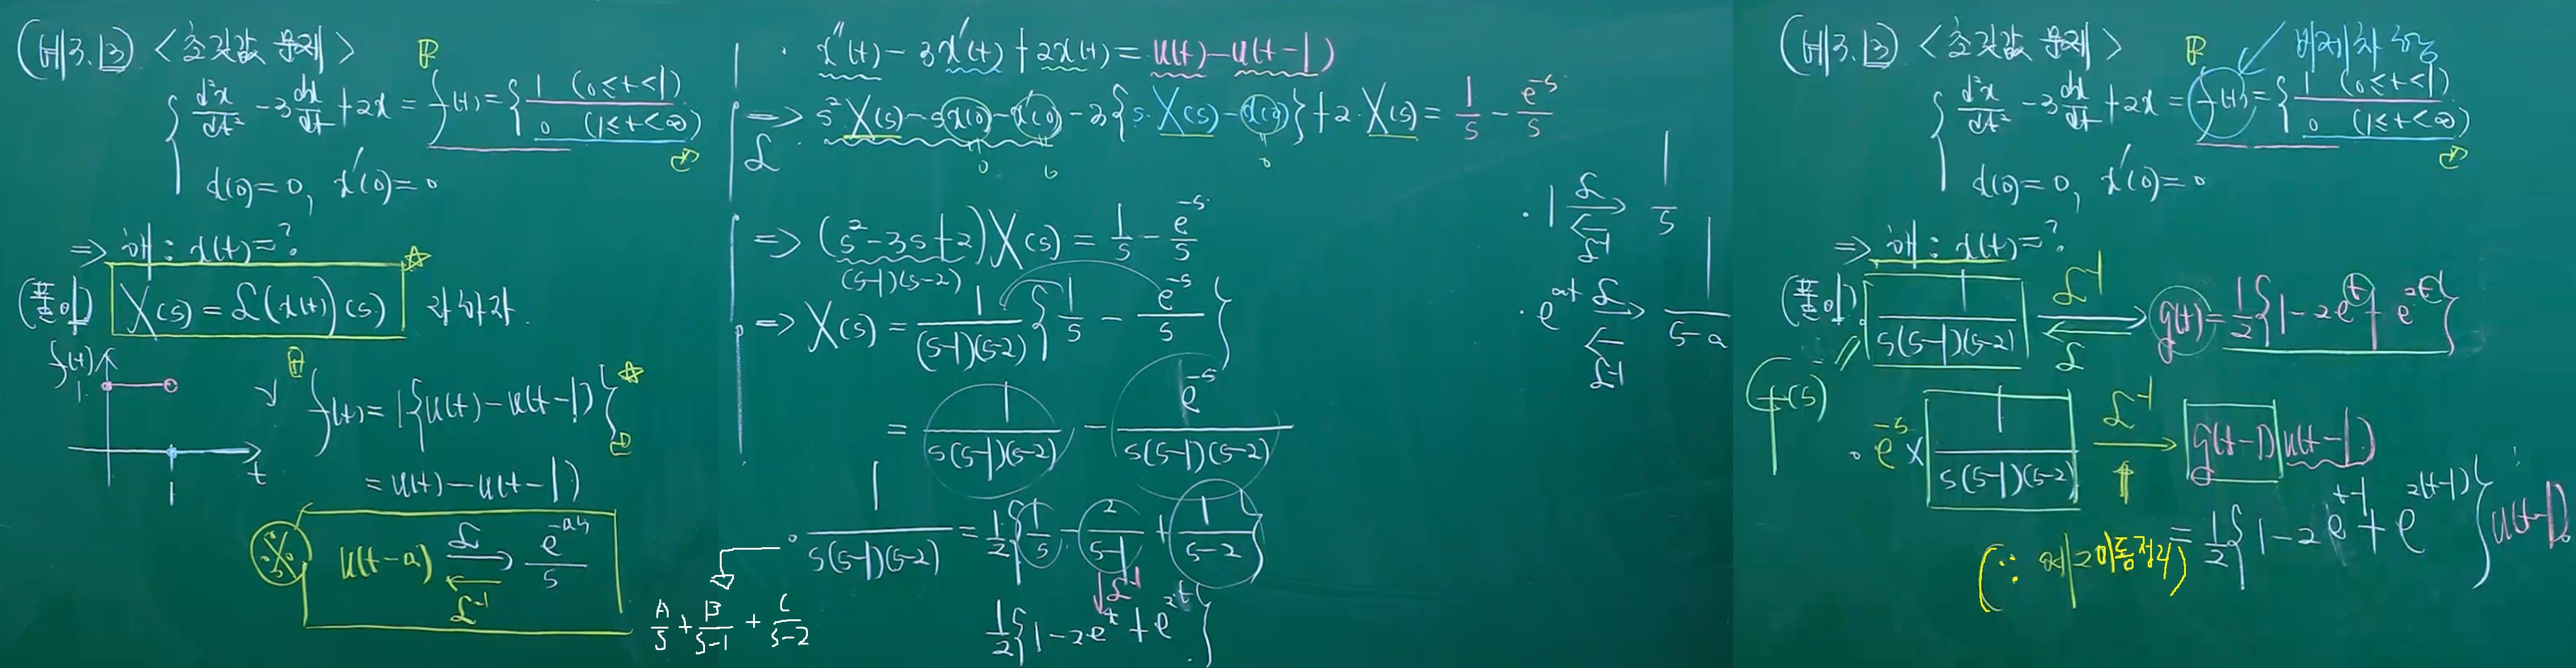 (예3.13) <초깃값 문제>
d²x/dt² - 3 dx/dt + 2x = f(t) = { 1 (0≤t<1)
0 (1≤t<∞)
x(0)=0, x'(0)=0
⇒ 해 : x(t)=?
(풀이) X(s) = ℒ(x(t))(s) 라 하자. ☆
f(t)
1
t
1
f(t) = 1{u(t)-u(t-1)} ☆
= u(t)-u(t-1)
u(t-a) ℒ→ ←ℒ⁻¹ e^(-as)/s
· x''(t) - 3x'(t) + 2x(t) = u(t)-u(t-1)
⇒ ℒ s²X(s) - s x(0) - x'(0) - 3{s·X(s) - x(0)} + 2·X(s) = 1/s - e^(-s)/s
0 0 0
⇒ (s²-3s+2)X(s) = 1/s - e^(-s)/s
(s-1)(s-2)
⇒ X(s) = 1/((s-1)(s-2)) {1/s - e^(-s)/s}
= 1/(s(s-1)(s-2)) - e^(-s)/(s(s-1)(s-2))
· 1/(s(s-1)(s-2)) = 1/2{1/s - 2/(s-1) + 1/(s-2)}
A/s + B/(s-1) + C/(s-2)
↓ℒ⁻¹
1/2{1-2e^t+e^(2t)}
· 1 ℒ→ ←ℒ⁻¹ 1/s
· e^(at) ℒ→ ←ℒ⁻¹ 1/(s-a)
(예3.13) <초깃값 문제>
비제차항
d²x/dt² - 3 dx/dt + 2x = f(t) = { 1 (0≤t<1)
0 (1≤t<∞)
x(0)=0, x'(0)=0
⇒ 해 : x(t)=?
(풀이) · 1/(s(s-1)(s-2)) ℒ⁻¹→ ←ℒ g(t) = 1/2{1-2e^t+e^(2t)}
(s)
· e^(-s) × 1/(s(s-1)(s-2)) ℒ⁻¹→ g(t-1)u(t-1)
= 1/2{1-2e^(t-1)+e^(2(t-1))}u(t-1)
(∵ 제2이동정리)